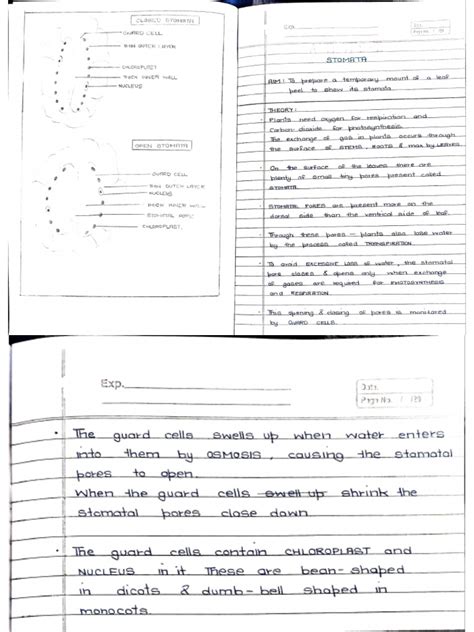 CLOSED STOMATA
GUARD CELL
THIN OUTER LAYER
CHLOROPLAST
THICK INNER WALL
NUCLEUS
OPEN STOMATA
GUARD CELL
THIN OUTER LAYER
NUCLEUS
THICK INNER WALL
STOMATAL PORE
CHLOROPLAST.
Exp.
Page No.
STOMATA
AIM: To prepare a temporary mount of a leaf
peel to show its stomata.
THEORY:
• Plants need oxygen for respiration and
Carbon dioxide for photosynthesis.
The exchange of gas in plants occurs through
the surface of STEMS, ROOTS & max by LEAVES
• On the surface of the leaves there are
plenty of small tiny pores present called
STOMATA.
• STOMATAL PORES are present more on the
dorsal side than the ventrical side of leaf.
• Through these pores - plants also lose water
by the process called TRANSPIRATION
• To avoid EXCESSIVE LOSS of water, the stomatal
pore closes & opens only when exchange
of gases are required for PHOTOSYNTHESIS
and RESPIRATION
• This opening & closing of pores is monitored
by GUARD CELLS.
Exp.
Date.
Page No.
• The guard cells swells up when water enters
into them by OSMOSIS, causing the stomatal
pores to open.
When the guard cells swell up shrink the
stomatal pores close down.
• The guard cells contain CHLOROPLAST and
NUCLEUS in it. These are bean-shaped
in dicots & dumb-bell shaped in
monocots.